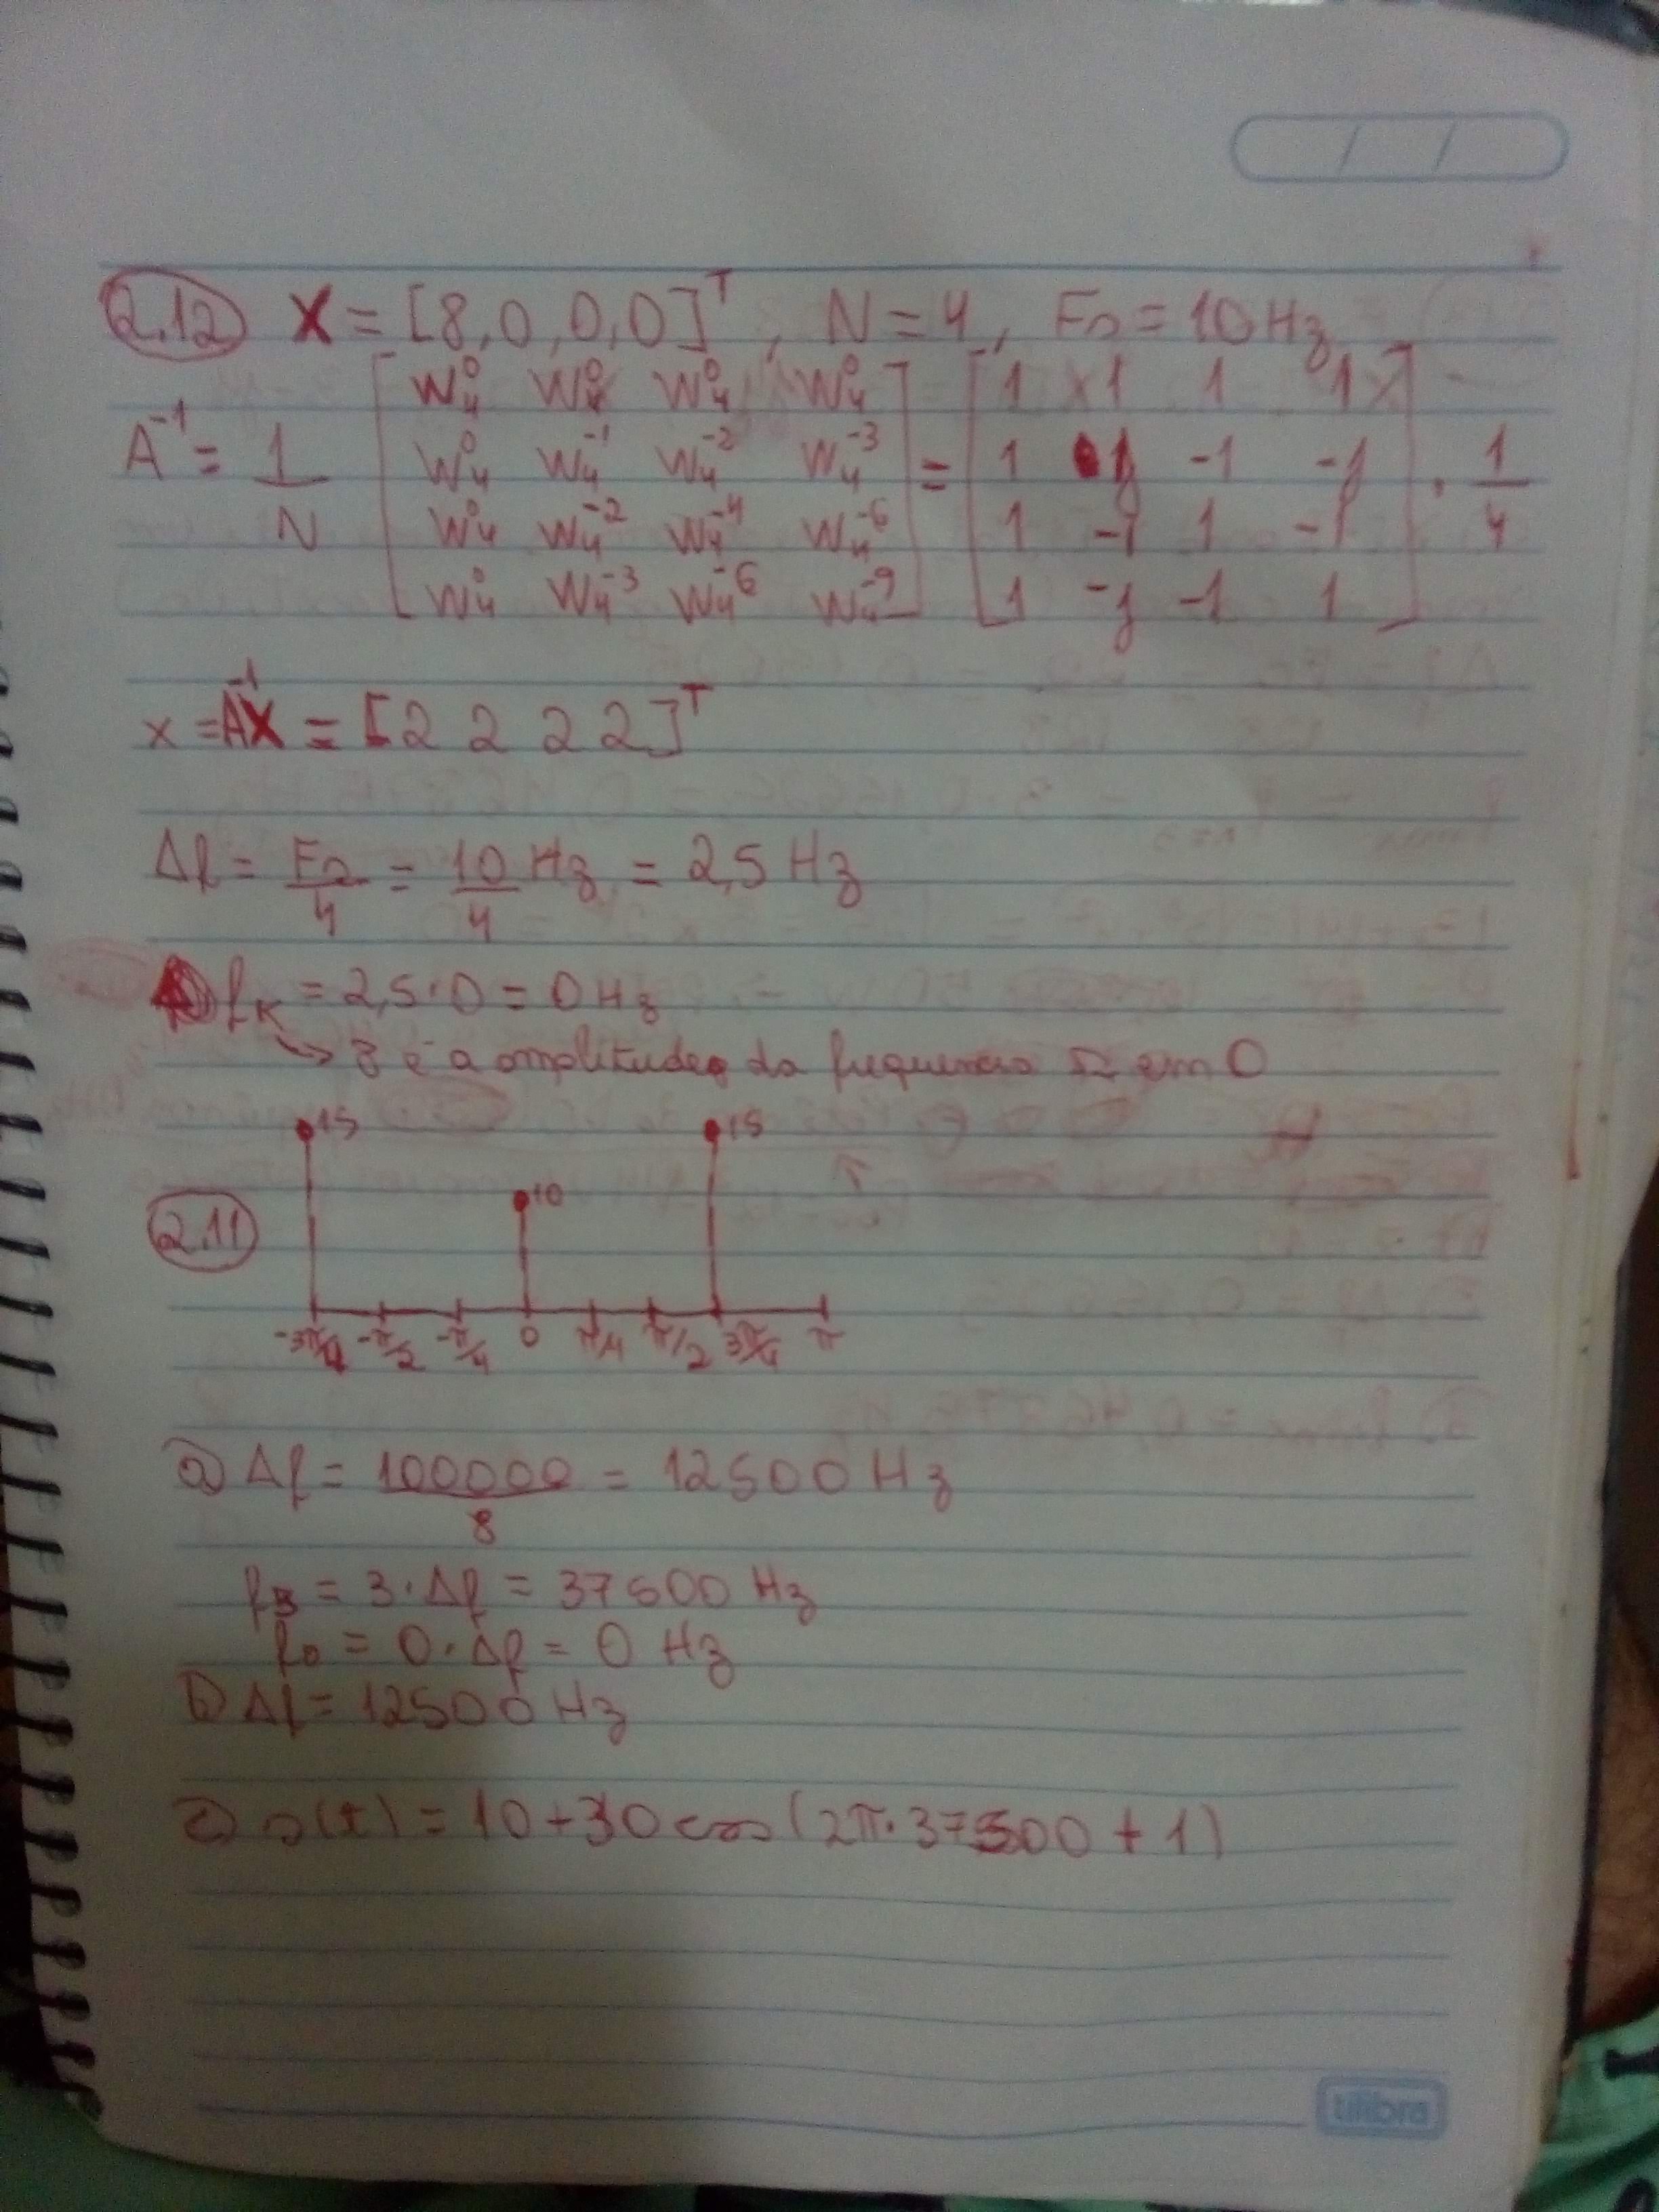 2.12 X = [8,0,0,0]ᵀ, N=4, Fs = 10 Hz
A⁻¹ = 1/N [W₄⁰ W₄⁰ W₄⁰ W₄⁰ = [1 1 1 1
W₄⁰ W₄⁻¹ W₄⁻² W₄⁻³ = 1 j -1 -j
W₄⁰ W₄⁻² W₄⁻⁴ W₄⁻⁶ 1 -1 1 -1
W₄⁰ W₄⁻³ W₄⁻⁶ W₄⁻⁹] 1 -j -1 1] · 1/4
x = A⁻¹X = [2 2 2 2]ᵀ
Δf = Fs/4 = 10/4 Hz = 2,5 Hz
fₖ = 2,5·0 = 0 Hz
↳ 8 é a amplitude da frequencia Ω em 0
15 15
10
2.11
-3π/4 -π/2 -π/4 0 π/4 π/2 3π/4 π
a) Δf = 100000/8 = 12500 Hz
f₃ = 3·Δf = 37500 Hz
f₀ = 0·Δf = 0 Hz
b) Δf = 12500 Hz
c) s(t) = 10 + 30 cos(2π·37500 + 1)
tilibra